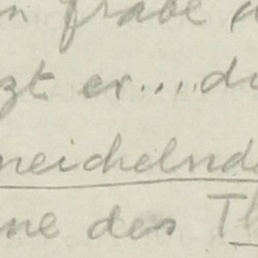 n grabe
zt er....du
meichelnde
ne des Th